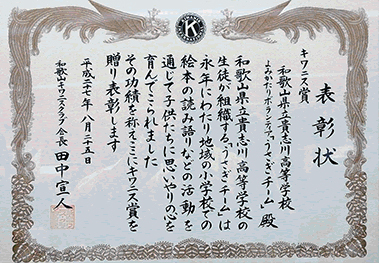 表彰状
キワニス賞
和歌山県立貴志川高等学校
よみかたりボランティア「うさぎチーム」殿
和歌山県立貴志川高等学校の
生徒が組織する「うさぎチーム」は
永年にわたり地域の小学校での
絵本の読み語りなどの活動を
通じて子供たちに思いやりの心を
育んでこられました
その功績を称えここにキワニス賞を
贈り表彰します
平成二十七年八月二十五日
和歌山キワニスクラブ会長 田中宣人